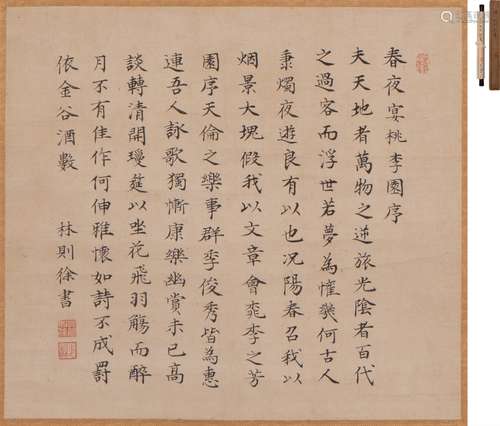 春夜宴桃李園序
夫天地者萬物之逆旅光陰者百代
之過客而浮世若夢為懽幾何古人
秉燭夜遊良有以也況陽春召我以
烟景大塊假我以文章會桃李之芳
園序天倫之樂事群季俊秀皆為惠
連吾人詠歌獨慚康樂幽賞未已高
談轉清開瓊筵以坐花飛羽觴而醉
月不有佳作何伸雅懷如詩不成罰
依金谷酒數
林則徐書